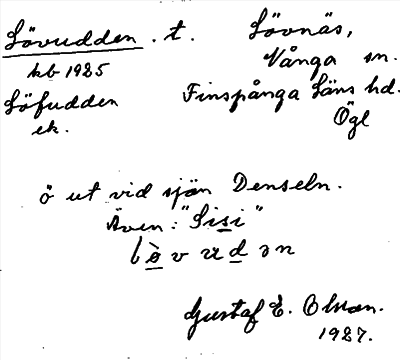 Lövudden . t. Lövnäs,
kb 1925 Vånga sn.
Löfudden Finspånga läns hd.
ek. Ögl
ö ut vid sjön Denseln.
Även: "Sisi"
lòvudən
Gustaf E. Olsson.
1927.